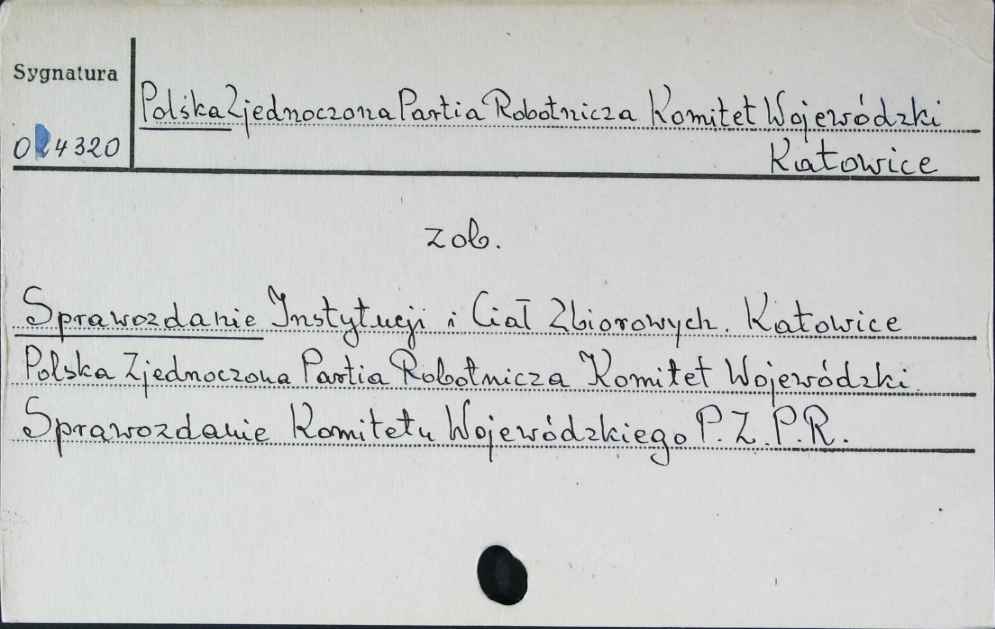 Sygnatura
Polska Zjednoczona Partia Robotnicza Komitet Wojewódzki
024320
Katowice
zob.
Sprawozdanie Instytucji i Ciał Zbiorowych. Katowice
Polska Zjednoczona Partia Robotnicza Komitet Wojewódzki.
Sprawozdanie Komitetu Wojewódzkiego P.Z.P.R.